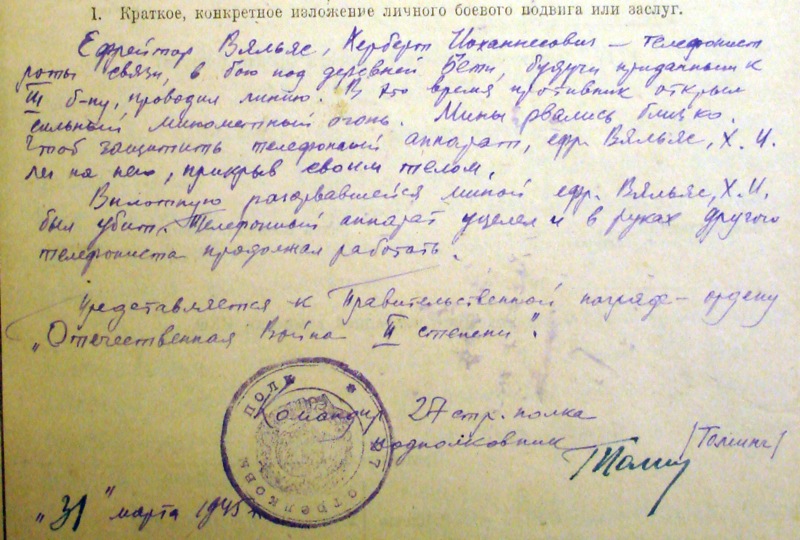 1. Краткое, конкретное изложение личного боевого подвига или заслуг.
Ефрейтор Вяльяс, Херберт Иоханнесович – телефонист
роты связи, в бою под деревней Бети, будучи приданным к
III б-ну, проводил линию. В это время противник открыл
сильный минометный огонь. Мины рвались близко.
Чтоб защитить телефонный аппарат, ефр. Вяльяс, Х. И.
лег на него, прикрыв своим телом.
Вплотную разорвавшейся миной ефр. Вяльяс, Х. И.
был убит. Телефонный аппарат уцелел и в руках другого
телефониста продолжал работать.
Представляется к Правительственной награде – ордену
„Отечественная Война II степени".
Командир 27 стр. полка
подполковник [Томинг]
„31" марта 1945 г.
27 стрелковый полк